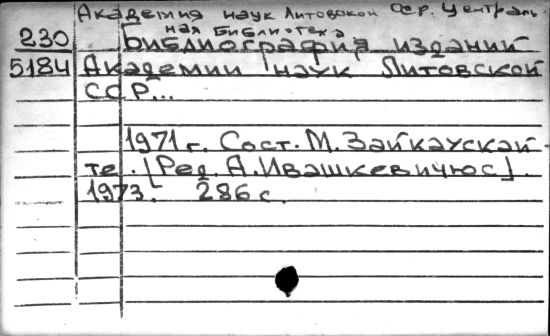 Академия наук Литовской ССР. Централь-
ная Библиотека
230 Библиография изданий
5184 Академии наук Литовской
ССР...
1971 г. Сост. М. Зайкаускай-
те. [Ред. А. Ивашкевичюс].
1973. 286 с.